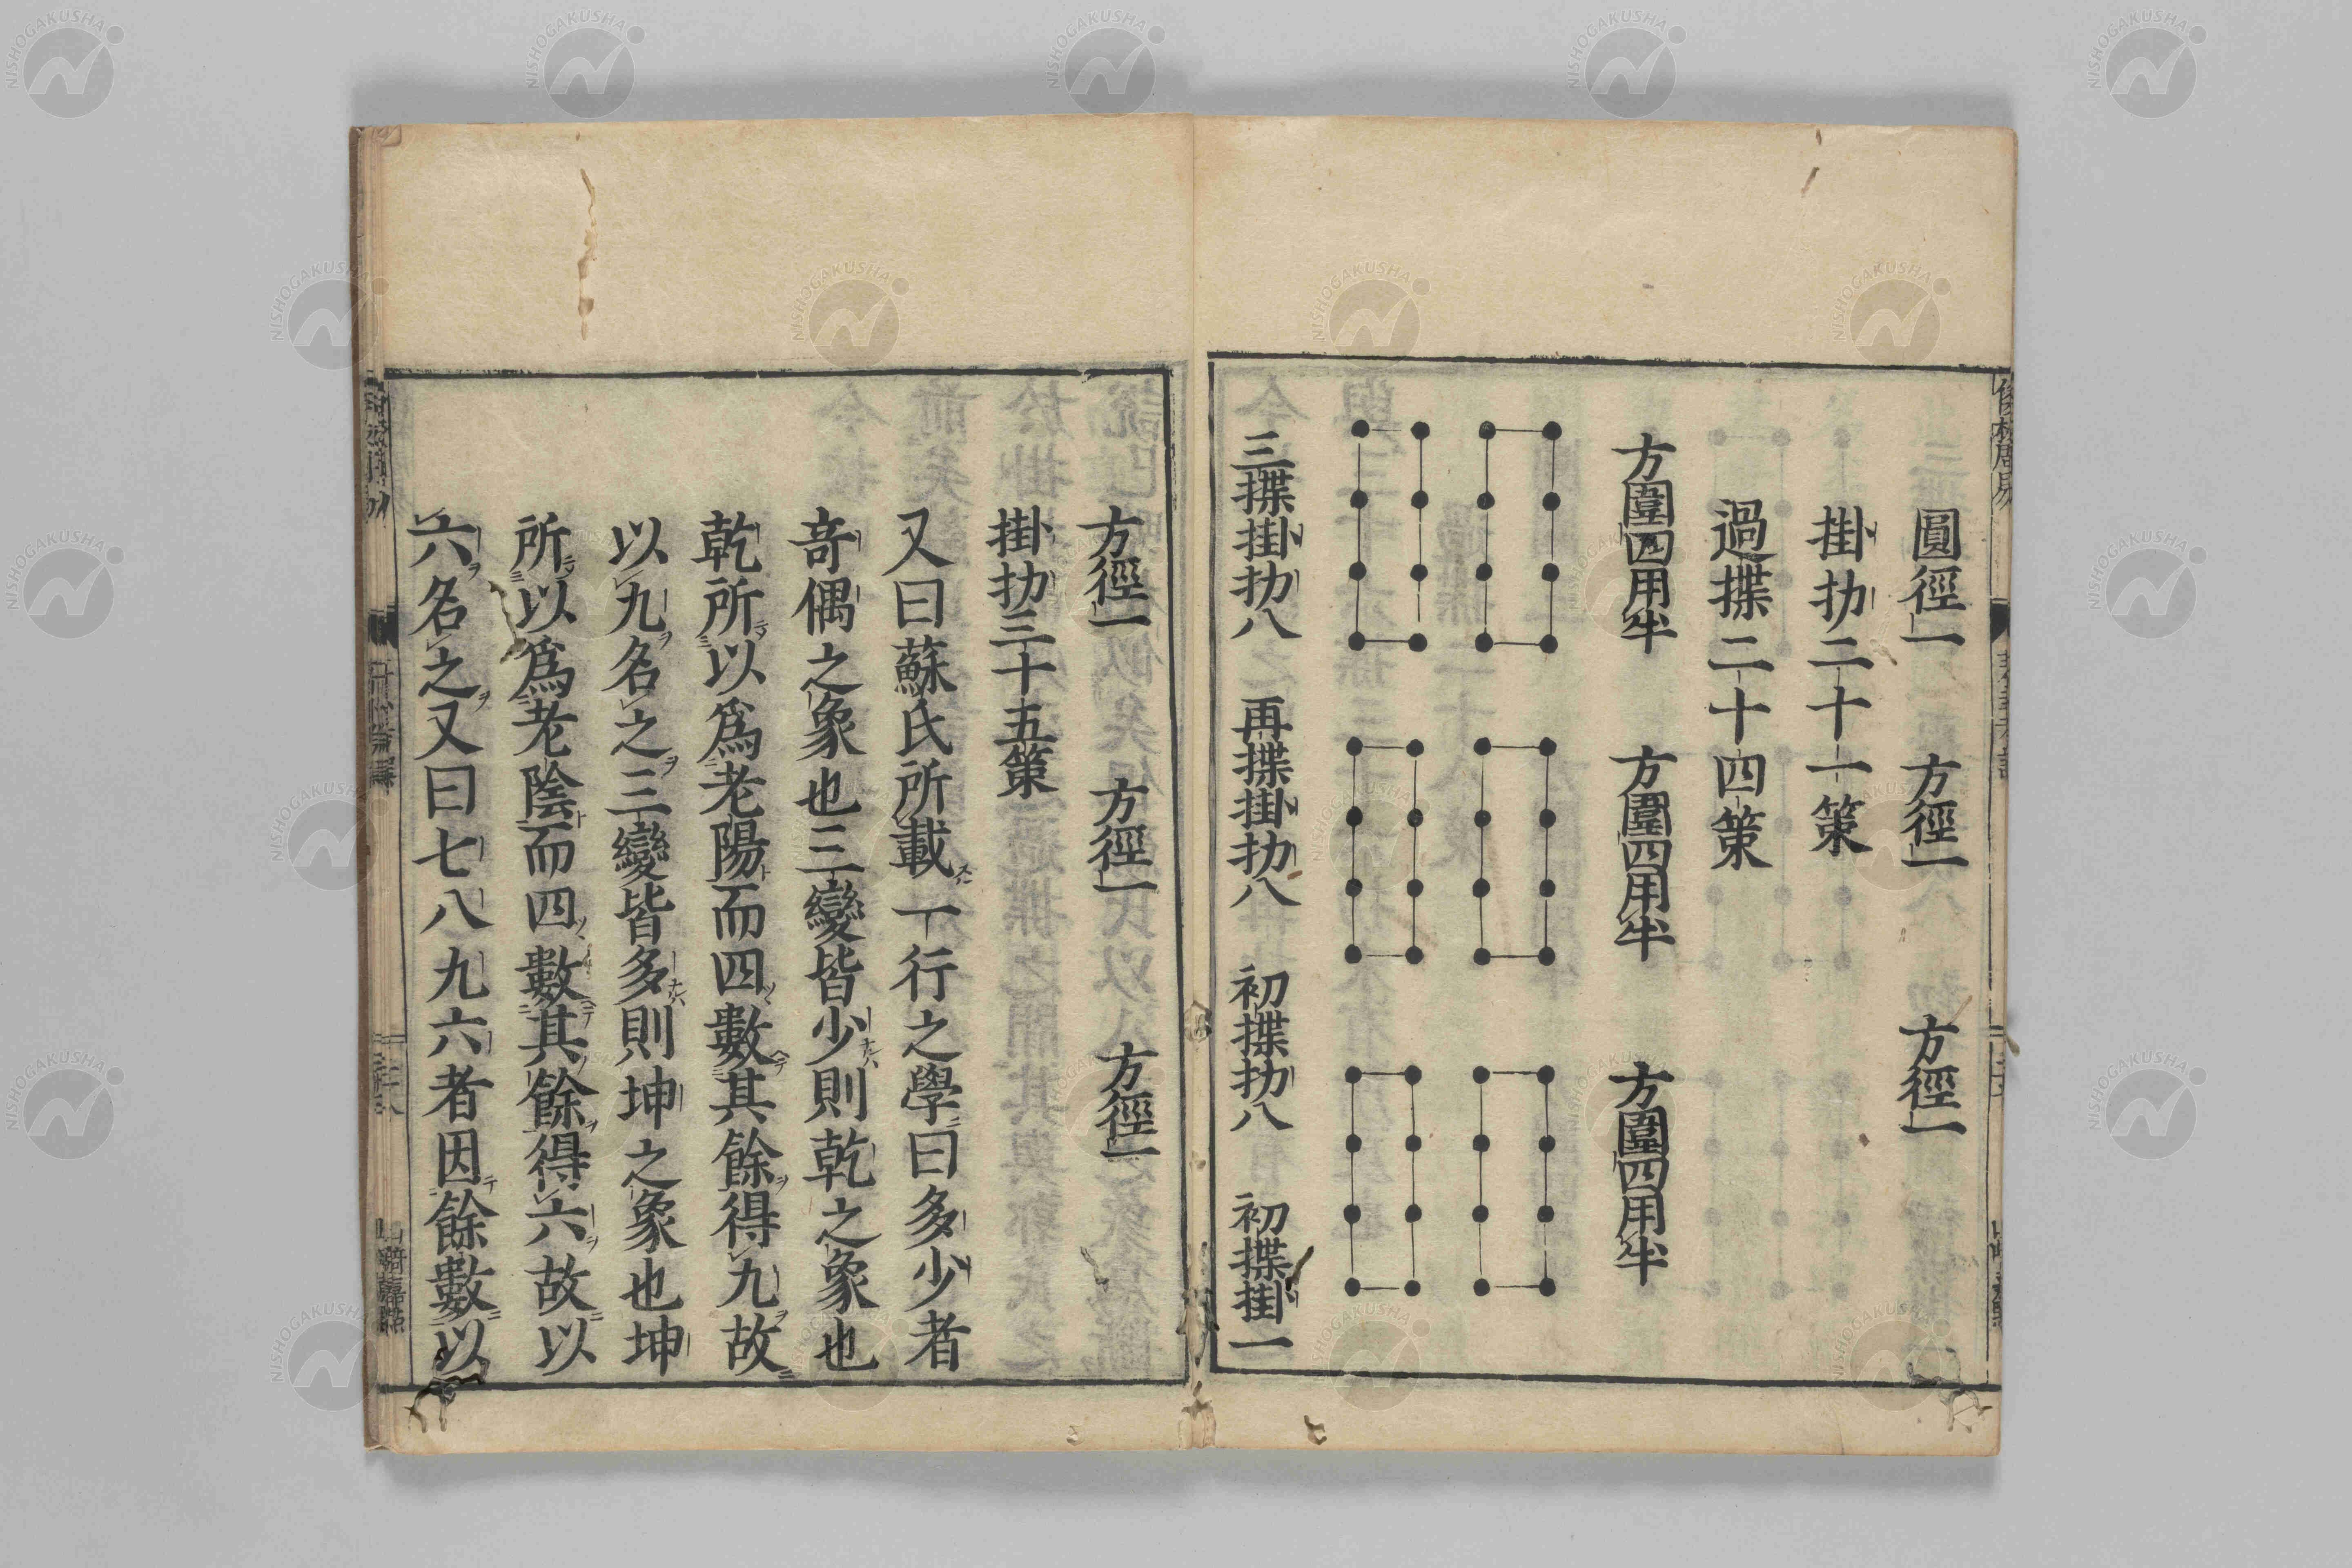 圓徑一 方徑一 方徑一
掛扐二十一策
過揲二十四策
方圍四用半 方圍四用半 方圍四用半
三揲掛扐八 再揲掛扐八 初揲扐八 初揲掛一
方徑一 方徑一 方徑一
掛扐三十五策
又曰蘇氏所載一行之學曰多少者
奇偶之象也三變皆少則乾之象也
乾所以爲老陽而四數其餘得九故
以九名之三變皆多則坤之象也坤
所以爲老陰而四數其餘得六故以
六名之又曰七八九六者因餘數以
NISHOGAKUSHA